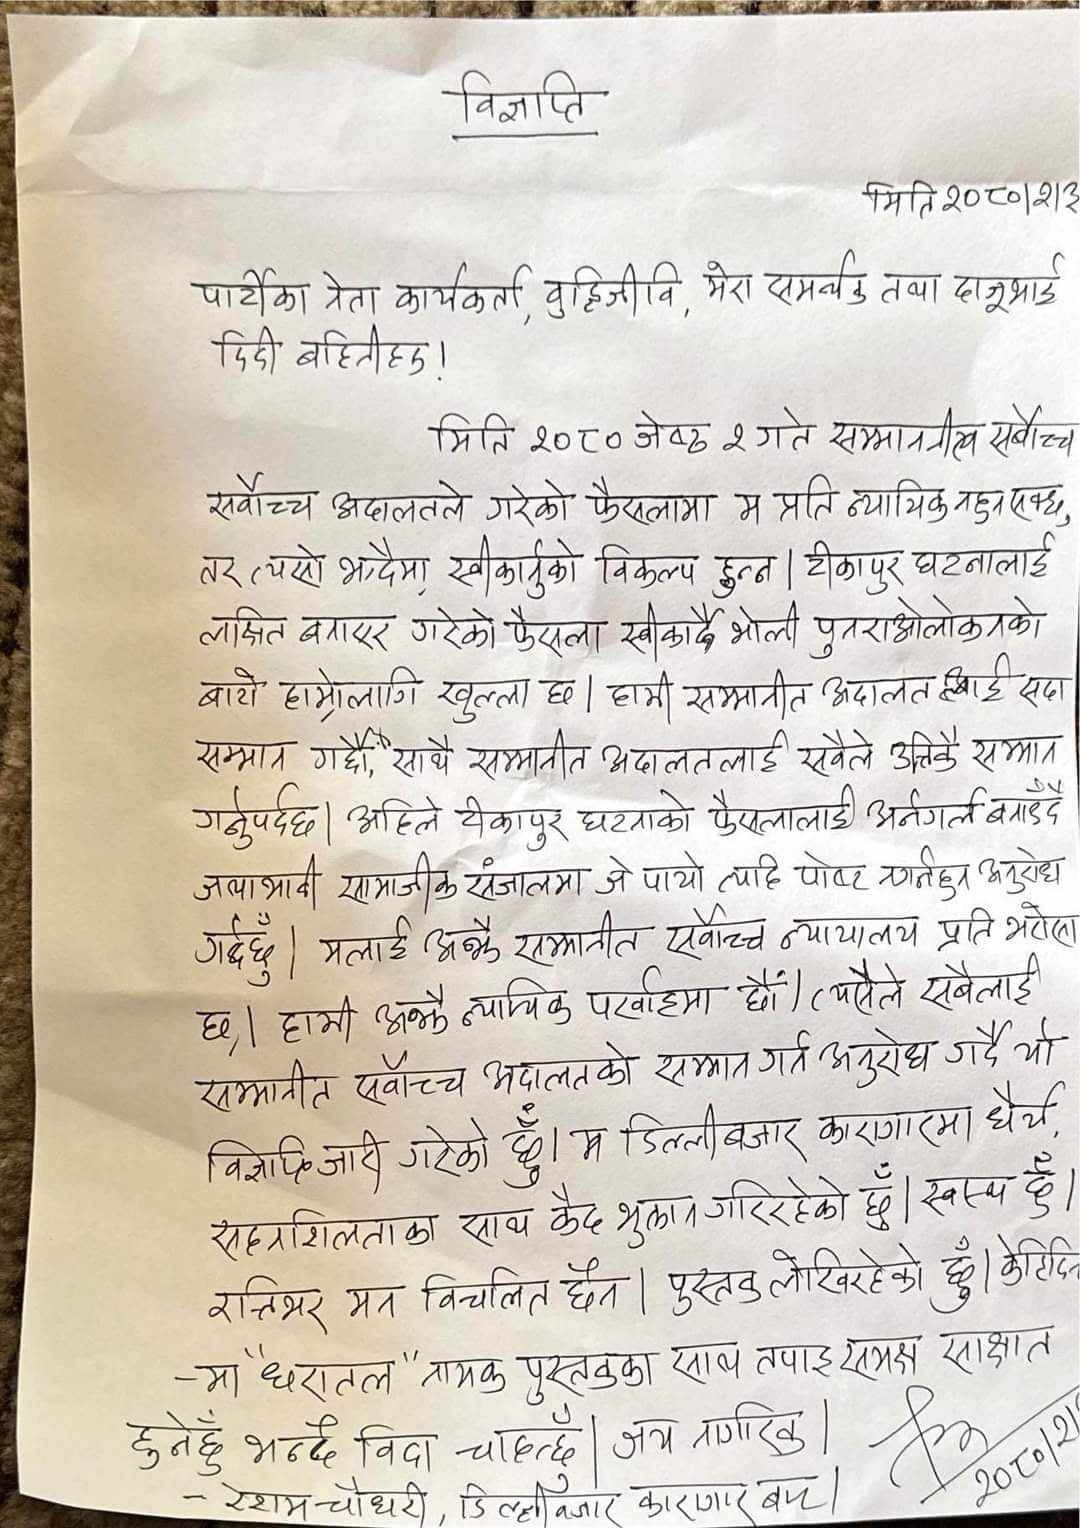 विज्ञप्ति
मिति २०८०।२।३
पार्टीका नेता कार्यकर्ता, वुद्धिजीवि, मेरा समर्थक तथा दाजूभाई
दिदी बहिनीहरु!
मिति २०८० जेष्ठ २ गते सम्माननीय सर्वोच्च
सर्वोच्च अदालतले गरेको फैसलामा म प्रति न्यायिक नहुन सक्छ,
तर त्यसो भन्दैमा स्वीकार्नुको विकल्प हुन्न। टीकापुर घटनालाई
लक्षित बनाएर गरेको फैसला स्वीकार्दै भोली पुनराओलोकनको
बाटो हाम्रोलागि खुल्ला छ। हामी सम्मानीत अदालतलाई सदा
सम्मान गर्दछौं, साथै सम्मानीत अदालतलाई सवैले उत्तिकै सम्मान
गर्नुपर्दछ। अहिले टीकापुर घटनाको फैसलालाई अर्नगर्ल बनाउँदै
जथाभावी सामाजीक संजालमा जे पायो त्यहि पोष्ट नगर्नहुन अनुरोध
गर्दछुँ। मलाई अझै सम्मानीत सर्वोच्च न्यायालय प्रति भरोसा
छ,। हामी अझै न्यायिक परर्वाहमा छौं। त्यसैले सबैलाई
सम्मानीत सर्वोच्च अदालतको सम्मान गर्न अनुरोध गर्दै यो
विज्ञप्ति जारी गरेको छुँ। म डिल्लीबजार कारागारमा धैर्य,
सहनशिलताका साथ कैद भुक्तान गरिरहेको छुँ। स्वस्थ छुँ।
रत्तिभर मन विचलित छैन। पुस्तक लेखिरहेको छुँ। केहिदिन
-मा "धरातल" नामक पुस्तकका साथ तपाइ समक्ष साक्षात
हुनेछुँ भन्दै विदा चाहन्छुँ। जय नागरिक।
२०८०।२।
- रेशम चौधरी, डिल्लीबजार कारागार बाट।